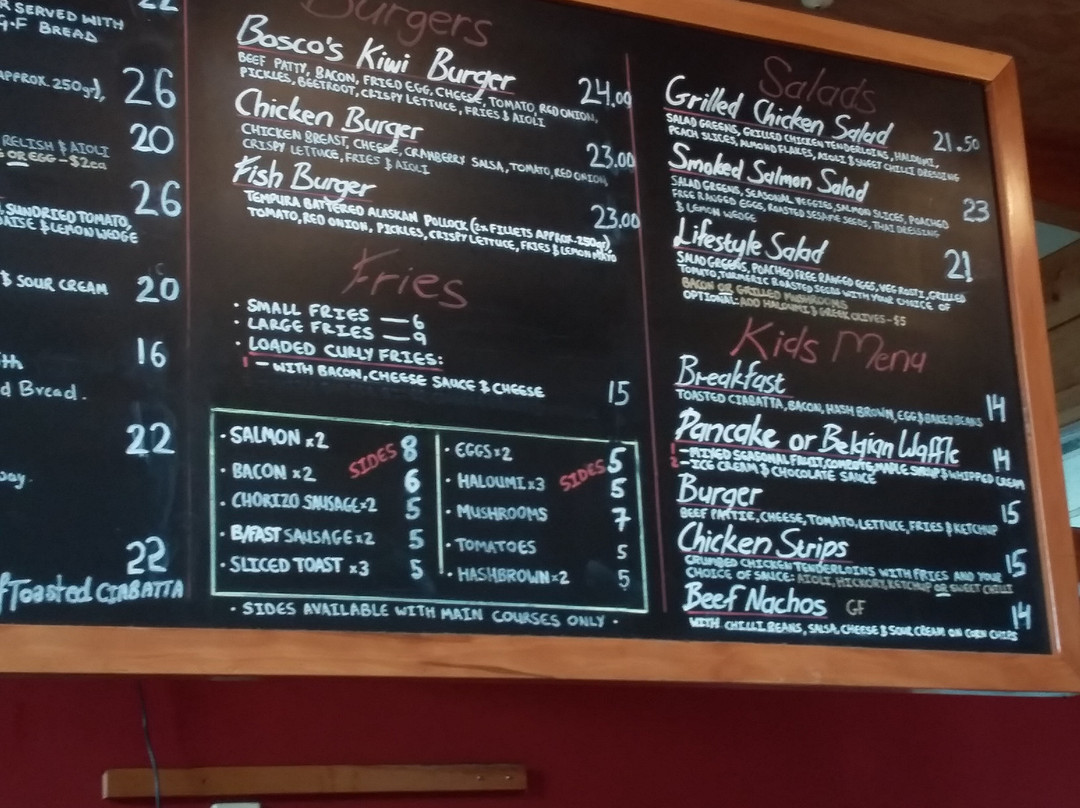 22
R SERVED WITH
G.F BREAD
APPROX. 250gr), 26
20
RELISH & AIOLI
OR EGG - $2
26
SUNDRIED TOMATO,
& LEMON WEDGE
& SOUR CREAM 20
16
th
d Bread.
22
way.
22
Toasted CIABATTA
Burgers
Bosco's Kiwi Burger
BEEF PATTY, BACON, FRIED EGG, CHEESE, TOMATO, RED ONION, 24.00
PICKLES, BEETROOT, CRISPY LETTUCE, FRIES & AIOLI
Chicken Burger
CHICKEN BREAST, CHEESE, CRANBERRY SALSA, TOMATO, RED ONION, 23.00
CRISPY LETTUCE, FRIES & AIOLI
Fish Burger
23.00
TEMPURA BATTERED ALASKAN POLLOCK (2x FILLETS APPROX. 250gr),
TOMATO, RED ONION, PICKLES, CRISPY LETTUCE, FRIES & LEMON MAYO
Fries
· SMALL FRIES — 6
· LARGE FRIES — 9
· LOADED CURLY FRIES:
1 - WITH BACON, CHEESE SAUCE & CHEESE 15
· SALMON x2 8
· BACON x2 6
SIDES
· CHORIZO SAUSAGE x2 5
· B/FAST SAUSAGE x2 5
· SLICED TOAST x3 5
· EGGS x2 5
· HALOUMI x3 5
SIDES
· MUSHROOMS 7
· TOMATOES 5
· HASHBROWN x2 5
· SIDES AVAILABLE WITH MAIN COURSES ONLY ·
Salads
Grilled Chicken Salad 21.50
SALAD GREENS, GRILLED CHICKEN TENDERLOINS, HALOUMI,
PEACH SLICES, ALMOND FLAKES, AIOLI & SWEET CHILLI DRESSING
Smoked Salmon Salad 23
SALAD GREENS, SEASONAL VEGGIES, SALMON SLICES, POACHED
FREE RANGED EGGS, ROASTED SESAME SEEDS, THAI DRESSING
& LEMON WEDGE
Lifestyle Salad 21
SALAD GREENS, POACHED FREE RANGED EGGS, VEG ROSTI, GRILLED
TOMATO, TURMERIC ROASTED SEEDS WITH YOUR CHOICE OF
BACON OR GRILLED MUSHROOMS
OPTIONAL: ADD HALOUMI & GREEK OLIVES - $5
Kids Menu
Breakfast
TOASTED CIABATTA, BACON, HASH BROWN, EGG & BAKED BEANS 14
Pancake or Belgian Waffle 14
1 - MIXED SEASONAL FRUIT, COMPOTE, MAPLE SYRUP & WHIPPED CREAM
2 - ICE CREAM & CHOCOLATE SAUCE
Burger 15
BEEF PATTIE, CHEESE, TOMATO, LETTUCE, FRIES & KETCHUP
Chicken Strips 15
CRUMBED CHICKEN TENDERLOINS WITH FRIES AND YOUR
CHOICE OF SAUCE: AIOLI, HICKORY, KETCHUP OR SWEET CHILLI
Beef Nachos GF 14
WITH CHILLI BEANS, SALSA, CHEESE & SOUR CREAM ON CORN CHIPS